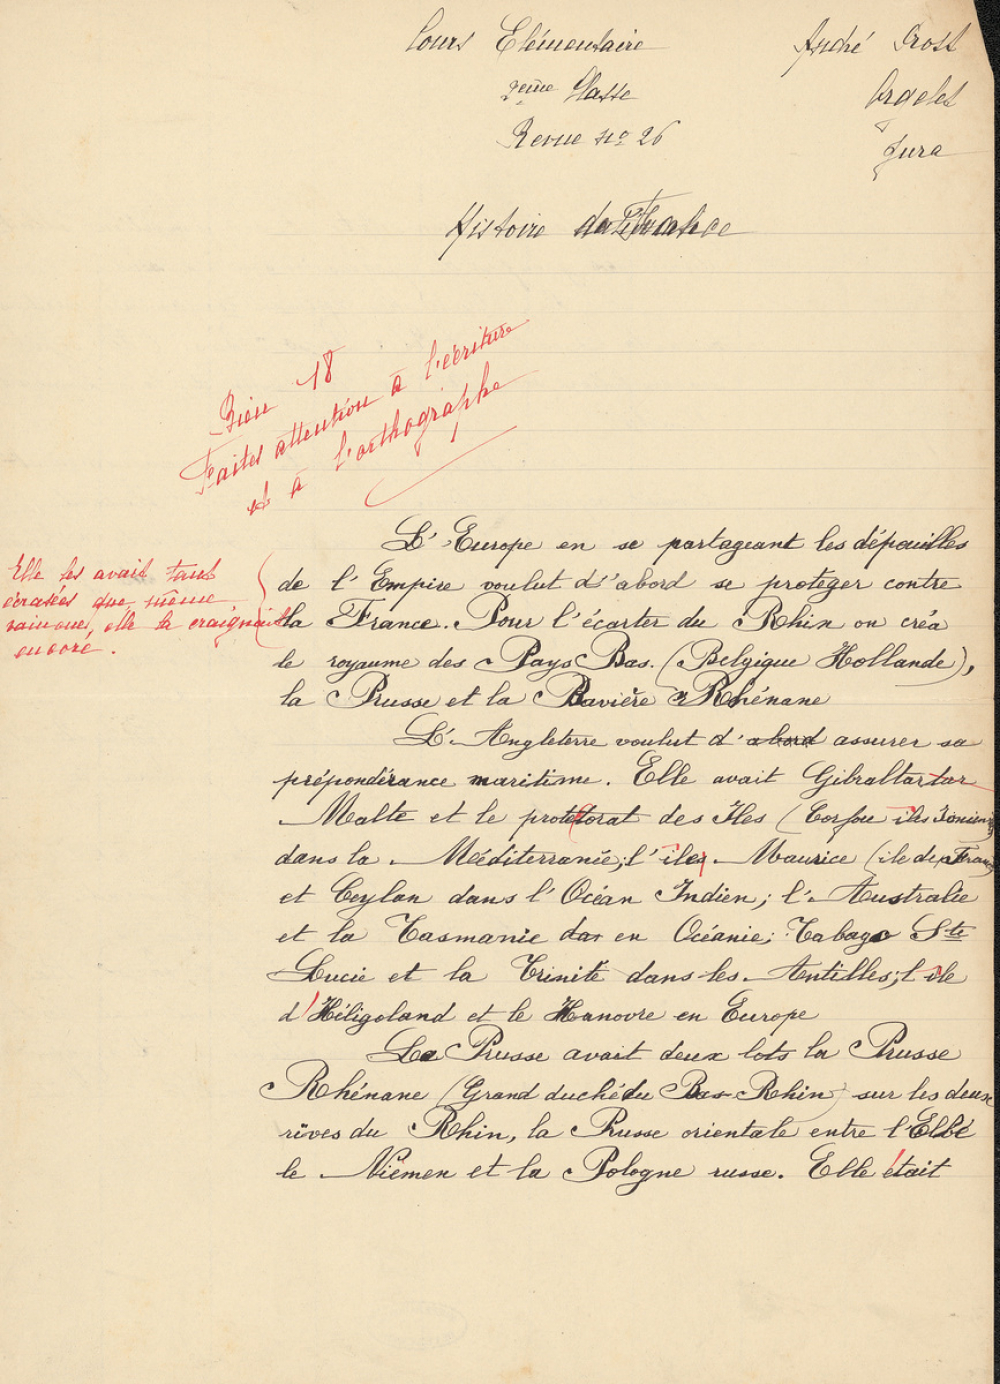 Cours Elémentaire
André Crost
2eme Classe
Orgelet
Revue no 26
Jura
Histoire de France
Bien 18
Faites attention à l'écriture
et à l'orthographe
Elle les avait tant
écrasées que, même
vaincue, elle le craignait
encore.
L'Europe en se partageant les dépouilles
de l'Empire voulut d'abord se protéger contre
la France. Pour l'écarter du Rhin on créa
le royaume des Pays Bas. (Belgique Hollande),
la Prusse et la Bavière Rhénane
L'Angleterre voulut d'abord assurer sa
prépondérance maritime. Elle avait Gibraltartar
Malte et le protectorat des Iles (Corfou iles Ioniennes
dans la Méditerranée; l'iles Maurice (ile de France
et Ceylan dans l'Océan Indien; l'Australie
et la Tasmanie dar en Océanie; Tabago Ste
Lucie et la Trinité dans les Antilles; l'ile
d'Héligoland et le Hanovre en Europe
La Prusse avait deux lots la Prusse
Rhénane (Grand duché du Bas-Rhin) sur les deux
rives du Rhin, la Prusse orientale entre l'Elbe
le Niémen et la Pologne russe. Elle était